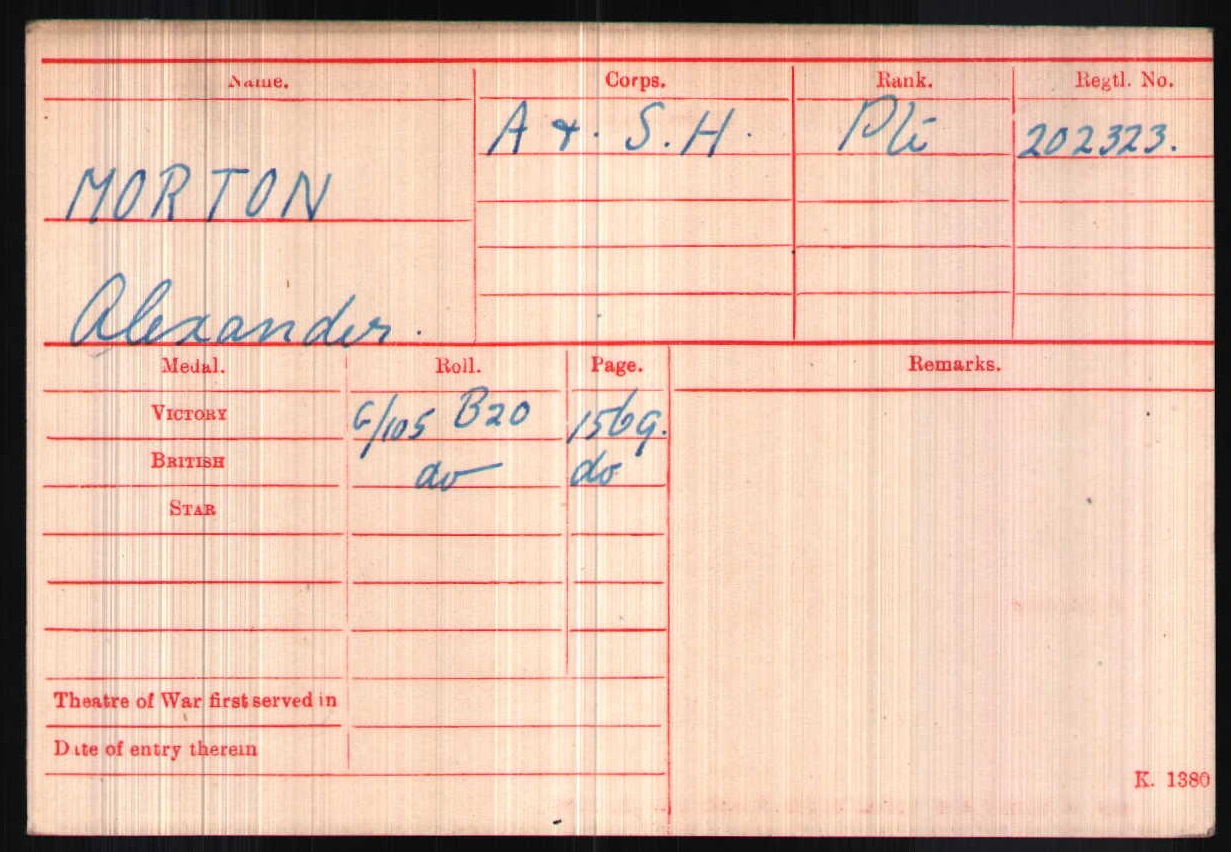 Name. Corps. Rank. Regtl. No.
A &. S.H. Pte 202323.
MORTON
Alexander.
Medal. Roll. Page. Remarks.
VICTORY G/105 B20 1569.
BRITISH do do
STAR
Theatre of War first served in
Date of entry therein
K. 1380